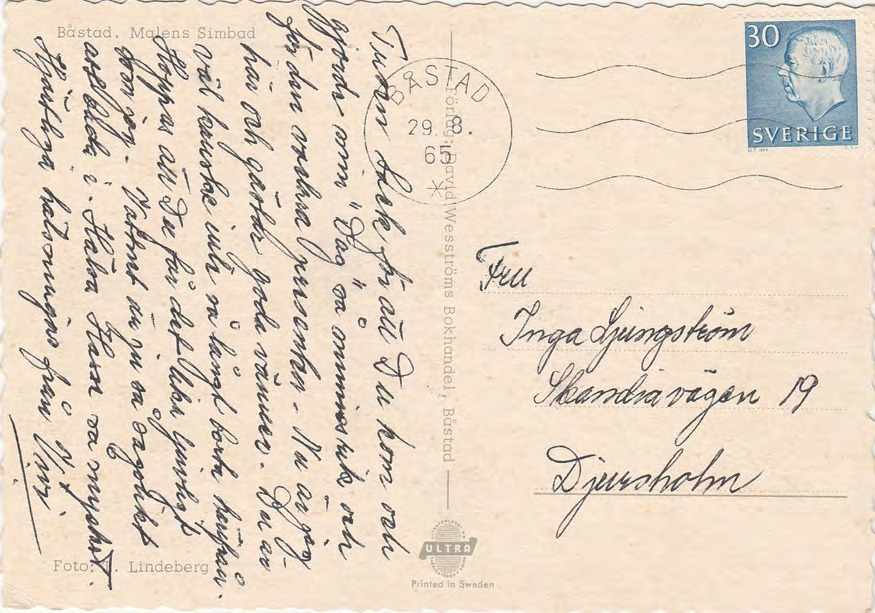 Båstad. Malens Simbad
Tusen tack för att Du kom och
gjorde min "Dag" så minnesrik och
för den vackra presenten. Nu är jag
här och gästar goda vänner. Du är
väl kanske inte så långt borta
Hoppas att Du får det lika
som jag. Vattnet är ju så
i. Hälsa
Hjärtliga hälsningar från
Foto: Lindeberg
Förlag: David Wesströms Bokhandel, Båstad
ULTRA
Printed in Sweden
BÅSTAD
29. 8.
65
30
SVERIGE
Fru
Inga Ljungström
Skandiavägen 19
Djursholm